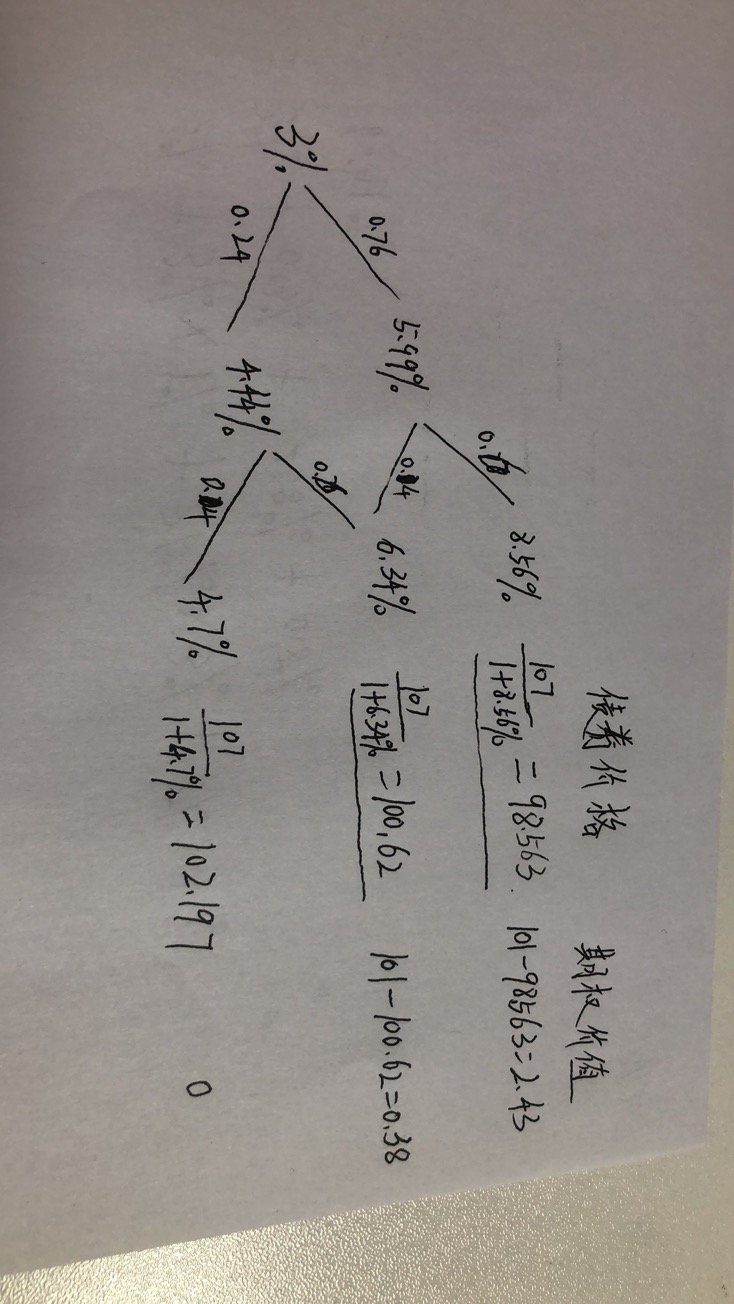 债券价格 期权价值
8.56% 107/1+8.56% = 98.563. 101-98.563=2.43
0.76 5.99%
6.34% 107/1+6.34% = 100.62 101-100.62=0.38
3%
0.24 4.44%
4.7% 107/1+4.7% = 102.197 0